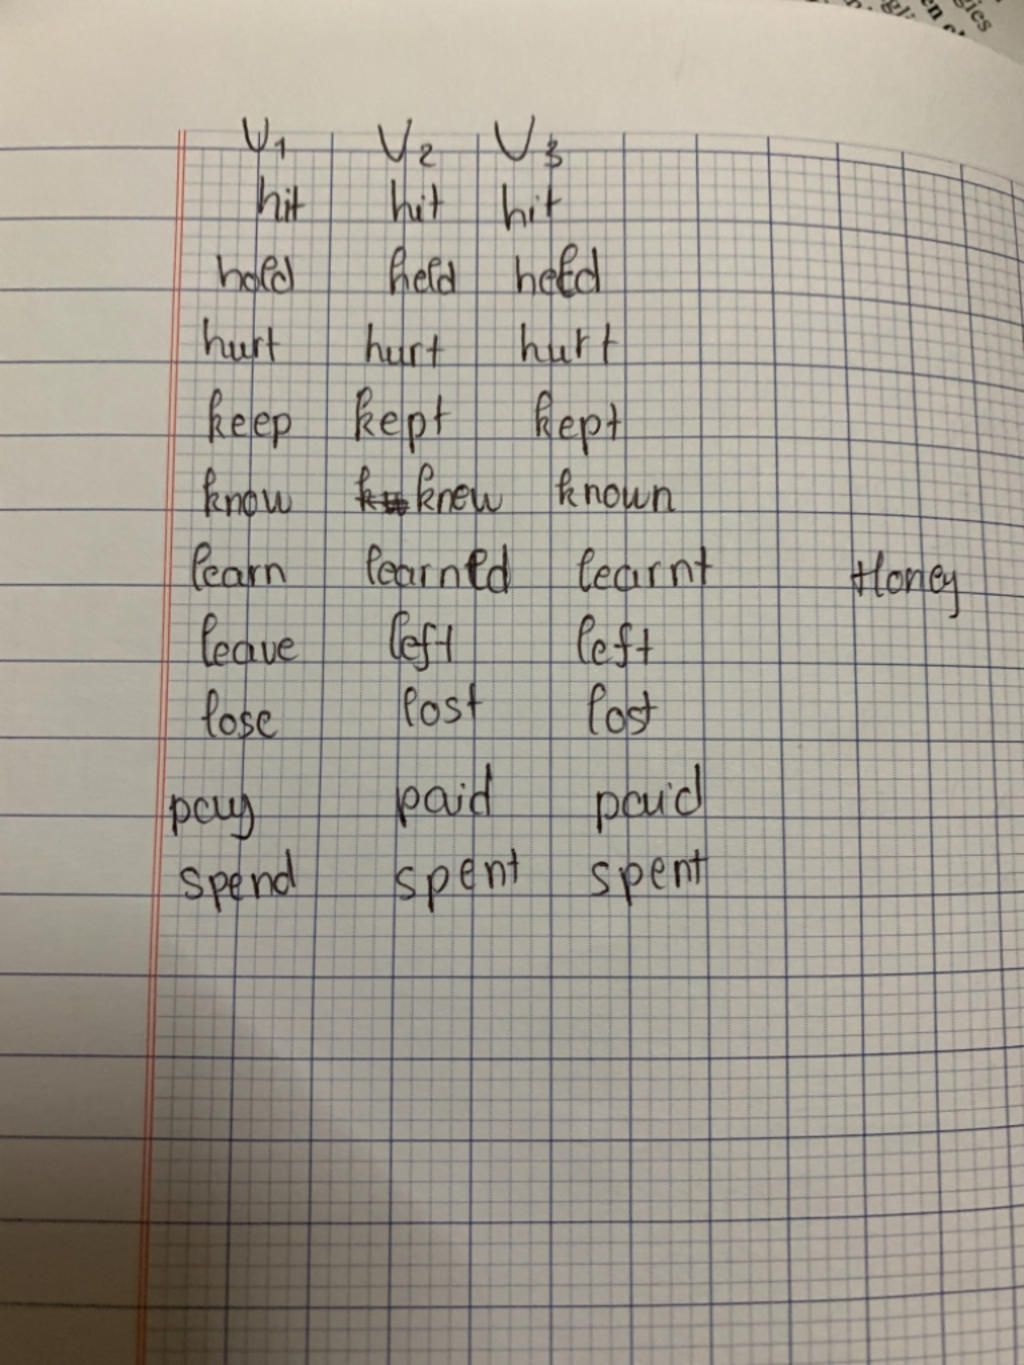 V1 V2 V3
hit hit hit
hold held held
hurt hurt hurt
keep kept kept
know knew known
learn learned learnt Honey
leave left left
lose lost lost
pay paid paid
spend spent spent